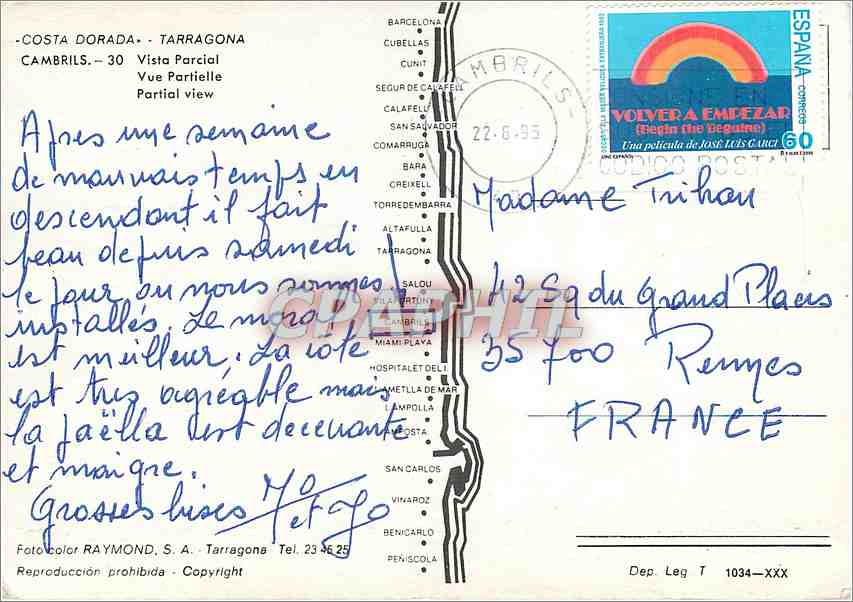 -COSTA DORADA- - TARRAGONA
CAMBRILS. - 30 Vista Parcial
Vue Partielle
Partial view
Après une semaine
de mauvais temps en
descendant il fait
beau depuis samedi
le jour ou nous sommes
installés. Le moral
est meilleur. La cote
est très agréable mais
la paëlla est decevante
et maigre.
Grosses bises
et Jo
Foto color RAYMOND, S. A. - Tarragona Tel. 23 45 25
Reproducción prohibida - Copyright
BARCELONA
CUBELLAS
CUNIT
SEGUR DE CALAFELL
CALAFELL
SAN SALVADOR
COMARRUGA
BARA
CREIXELL
TORREDEMBARRA
ALTAFULLA
TARRAGONA
SALOU
VILAFORTUNY
CAMBRILS
MIAMI-PLAYA
HOSPITALET DEL I.
AMETLLA DE MAR
LAMPOLLA
AMPOSTA
SAN CARLOS
VINAROZ
BENICARLO
PEÑISCOLA
CAMBRILS
22-8-95
CODIGO POSTAL
ESPAÑA
CORREOS
VOLVER A EMPEZAR
(Begin the Beguine)
Una película de JOSÉ LUIS GARCI
60
CINE ESPAÑOL
Madame Trihan
42 Sq du Grand Placis
35700 Rennes
FRANCE
Dep. Leg T 1034-XXX
CPAPHIL